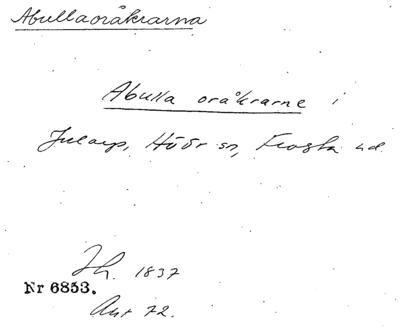 Abullaoråkrarna
Abulla oråkrarne i
Jularp, Höör sn, Frosta hd.
1837
Nr 6853.
Ant 72.